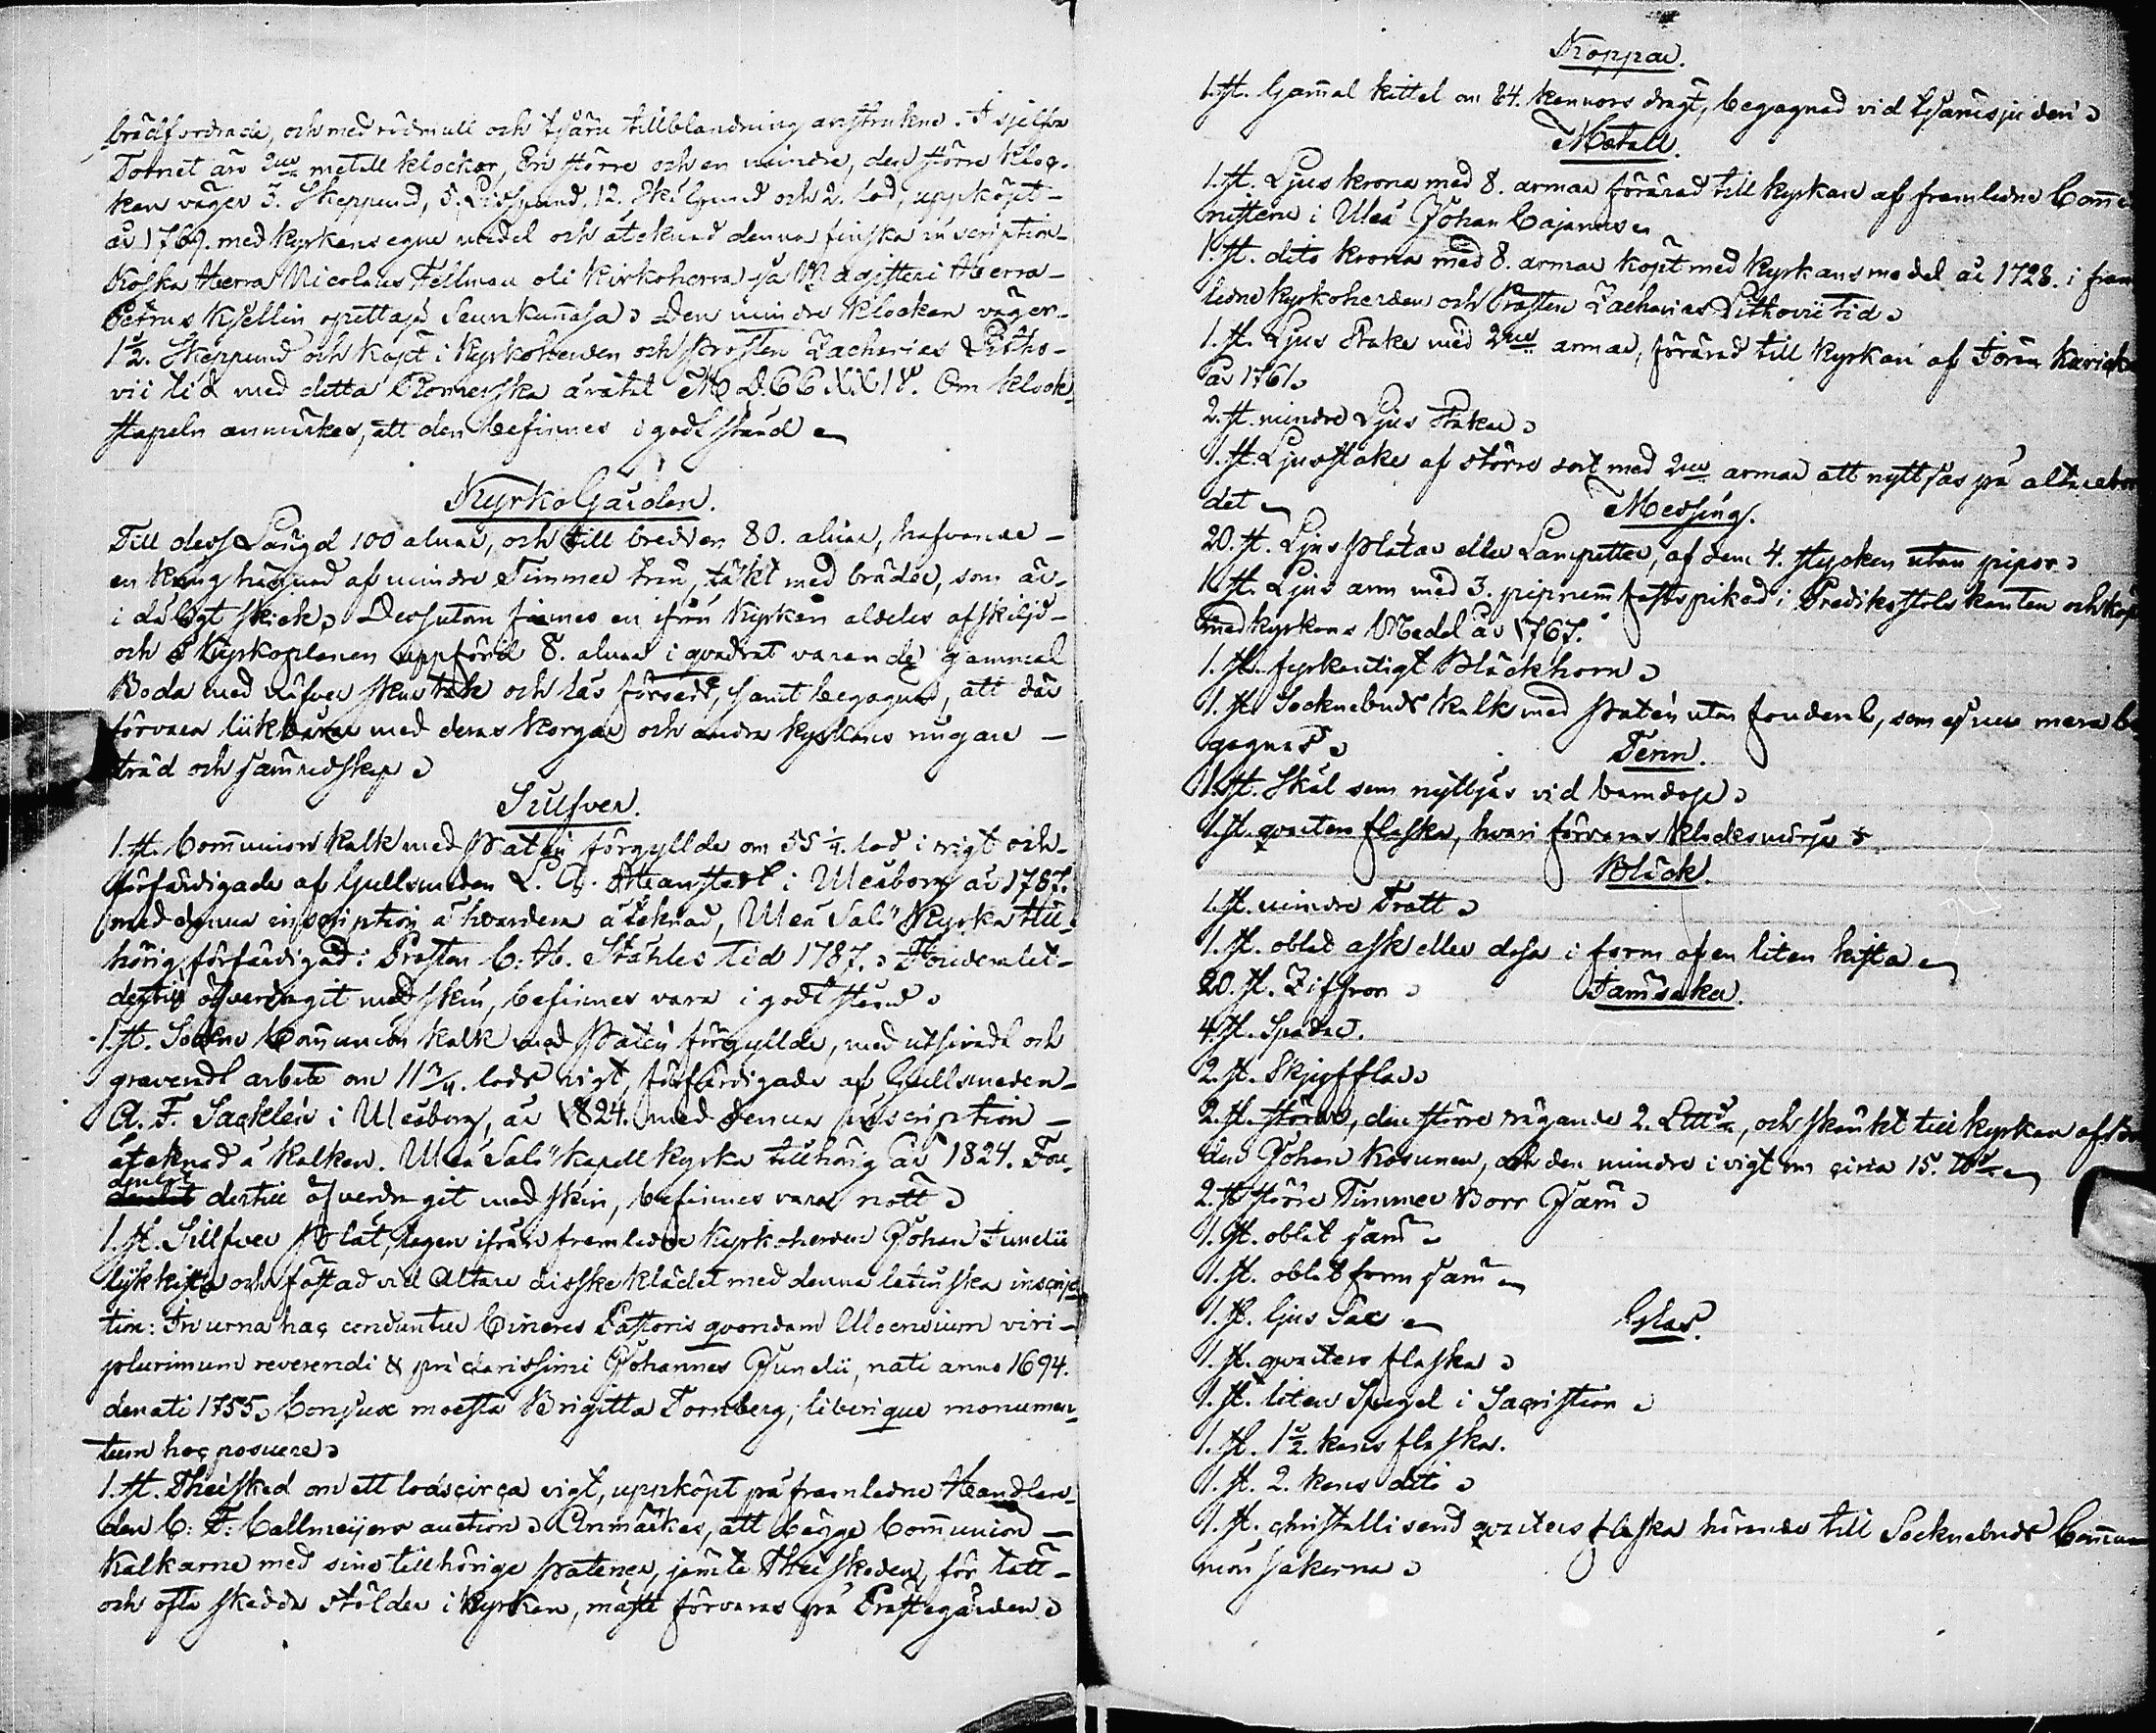 brädfordrade, och med rödmull och tjäru tillblandning anstrukne. I sjelfva
Tornet äro 2ne metall klockor, En större och en mindre, den större kloc-
kan väger 3. Skeppund, 5. Lispund, 12. Skålpund och 2. lod, uppköpt
år 1769. med kyrkans egne medel och åteknad denna finska inscription
Koska Herra Nicolaus Fellman oli Kirkoherra ja Magisteri Herra
Petrus Kjellin opettaja Seurakunnasa. Den mindre klockan väger
1 1/2. Skeppund och köpt i Kyrkoherden och Prosten Zacharias Litho-
vii tid med detta Romerska åratal M.D.CCXXIV. Om klock-
stapeln anmärkes, att den befinnes i godt stånd
KyrkoGården.
Till dess Längd 100 alnar, och till bredden 80. alnar, hafvande
en kring hägnad af mindre Timmer trän, täkt med bräder, som är
i dåligt skick. Dessutom finnes en ifrån kyrkan aldeles afskild
och å kyrkoplanen uppförd 8. alnar i qvadrat varande gammal
Boda med näfver skurtak och lås försedt, samt begagnas, att där
förvara likbårar med deras korgar och andra kyrkans ringare
träd och järnredskap
Silfver.
1. st. Communion Kalk med Patén förgyllde om 55 1/4. lod i vigt och
förfärdigade af Gullsmeden L. A. Meanstedt i Uleåborg år 1787.
med denna inscription å hvardera åteknad, Uleå Salo Kyrka till-
hörig förfärdigad i Prosten C. H. Ståhles tid 1787. Foudralet
dertill öfverdragit med skin, befinnes vara i godt stånd
1. st. Sockne Communion Kalk med Patén förgyllde, med utsiradt och
graveradt arbete om 11 3/4. lods vigt, förfärdigade af Gullsmeden
A. F. Sacklén i Uleåborg, år 1824. med denna inscription
åteknad å Kalken. Uleå Salo Kapell kyrka tillhörig år 1824. Fou-
dralet dertill öfverdragit med skin, befinnes vara nött
1. st. Sillfver Plåt, tagen ifrån framledne Kyrkoherden Johan Junelii
likkista och fästad vid Altare disske klädet med denna latinska inscrip-
tion: In urna hac conduntur Cineres Pastoris quondam Uloensium viri
plurimum reverendi & præclarissimi Johannes Junelii, nati anno 1694.
denati 1755. Conjux moesta Brigitta Tornberg, liberique monumen-
tum hoc posuere
1. st. Theisked om ett lods circa vigt, uppköpt på framledne Handlan-
den C. F. Callmeijers auction. Anmärkes, att bägge Communion
Kalkarne med sine tillhörige Patener, jämte Theskeden, för tätt
och ofta skedda stölder i kyrkan, måste förvaras på Prästegården
Koppar.
1. st. Gammal kittel om 84. kannors drägt, begagnad vid tjärusjuden
Metall.
1. st. Ljus krona med 8. armar förärad till kyrkan af framledne
i Uleå Johan Cajanus
1. st. dito krona med 8. armar köpt med kyrkans medel år 1728. i fram
ledne kyrkoherden och Prosten Zacharias Lithovii tid
1. st. Ljus Stake med 2ne armar, förärad till kyrkan af Jöran
år 1761.
2. st. mindre Ljus stakar
1. st. Ljusstake af större sort med 2ne armar att nyttjas på altarebor
det
Messing.
20. st. Ljus plåtar eller Lampetter, af dem 4. stycken utan pipor
1. st. Ljus arm med 3. pipor fastspikad i Predikstols kanten och köpt
med kyrkans Medel år 1767.
1. st. fyrkantigt Bläckhorn
1. st. Sockenbuds Kalk med Patén utan foudral, som ej mera be
gagnas
Tenn.
1. st. Skål som nyttjas vid barndop
1. st. qvarters flaska, hvari förvaras klocksmörja
Bläck.
1. st. mindre Tratt
1. st. oblat ask eller dosa i form af en liten kista
20. st. Ziffror
Järnsaker.
4. st. Spadar.
2. st. Skyfflar
2. st. störar, den större vägande 2. och skänkt till kyrkan af
Johan Kosunen, och den mindre i vigt om circa 15.
2. st. större Timmer Borr Järn
1. st. oblat järn
1. st. oblat form järn
1. st. ljus Sax
Glas.
1. st. qvarters flaska
1. st. liten Spegel i Sacristian
1. st. 1 1/2. kans flaska.
1. st. 2. kans dito
1. st. christalliserad qvarters flaska hörande till Sockenbuds
sakerna